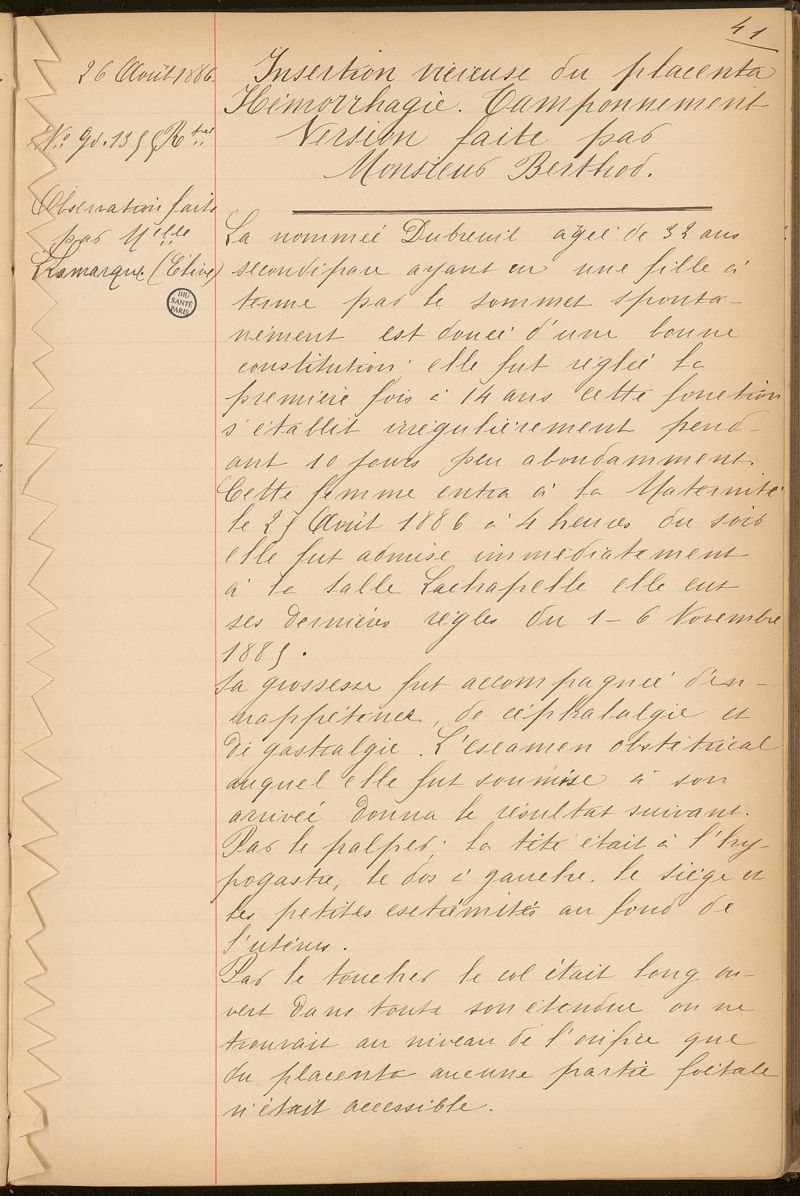 41
26 Août 1886.
Nº gl. 1355 Rtre
Observation faite
par Melle
Lamarque (Elève)
BIU
SANTÉ
PARIS
Insertion vicieuse du placenta
Hémorrhagie. Tamponnement
Version faite par
Monsieur Berthod.
La nommée Dubreuil agée de 32 ans
secondipare ayant eu une fille à
terme par le sommet sponta-
nément est douée d'une bonne
constitution; elle fut réglée la
première fois à 14 ans cette fonction
s'établit irrégulièrement pend-
ant 10 jours peu abondamment.
Cette femme entra à la Maternité
le 25 Août 1886 à 4 heures du soir
elle fut admise immédiatement
à la salle Lachapelle elle eut
ses dernières règles du 1-6 Novembre
1885.
Sa grossesse fut accompagnée d'in-
nappétence, de céphalalgie et
de gastralgie. L'examen obstétrical
auquel elle fut soumise à son
arrivée donna le résultat suivant.
Par le palper: la tête était à l'hy-
pogastre, le dos à gauche. le siège et
les petites extrémités au fond de
l'utérus.
Par le toucher le col était long ou-
vert dans toute son étendue on ne
trouvait au niveau de l'orifice que
du placenta aucune partie foétale
n'était accessible.